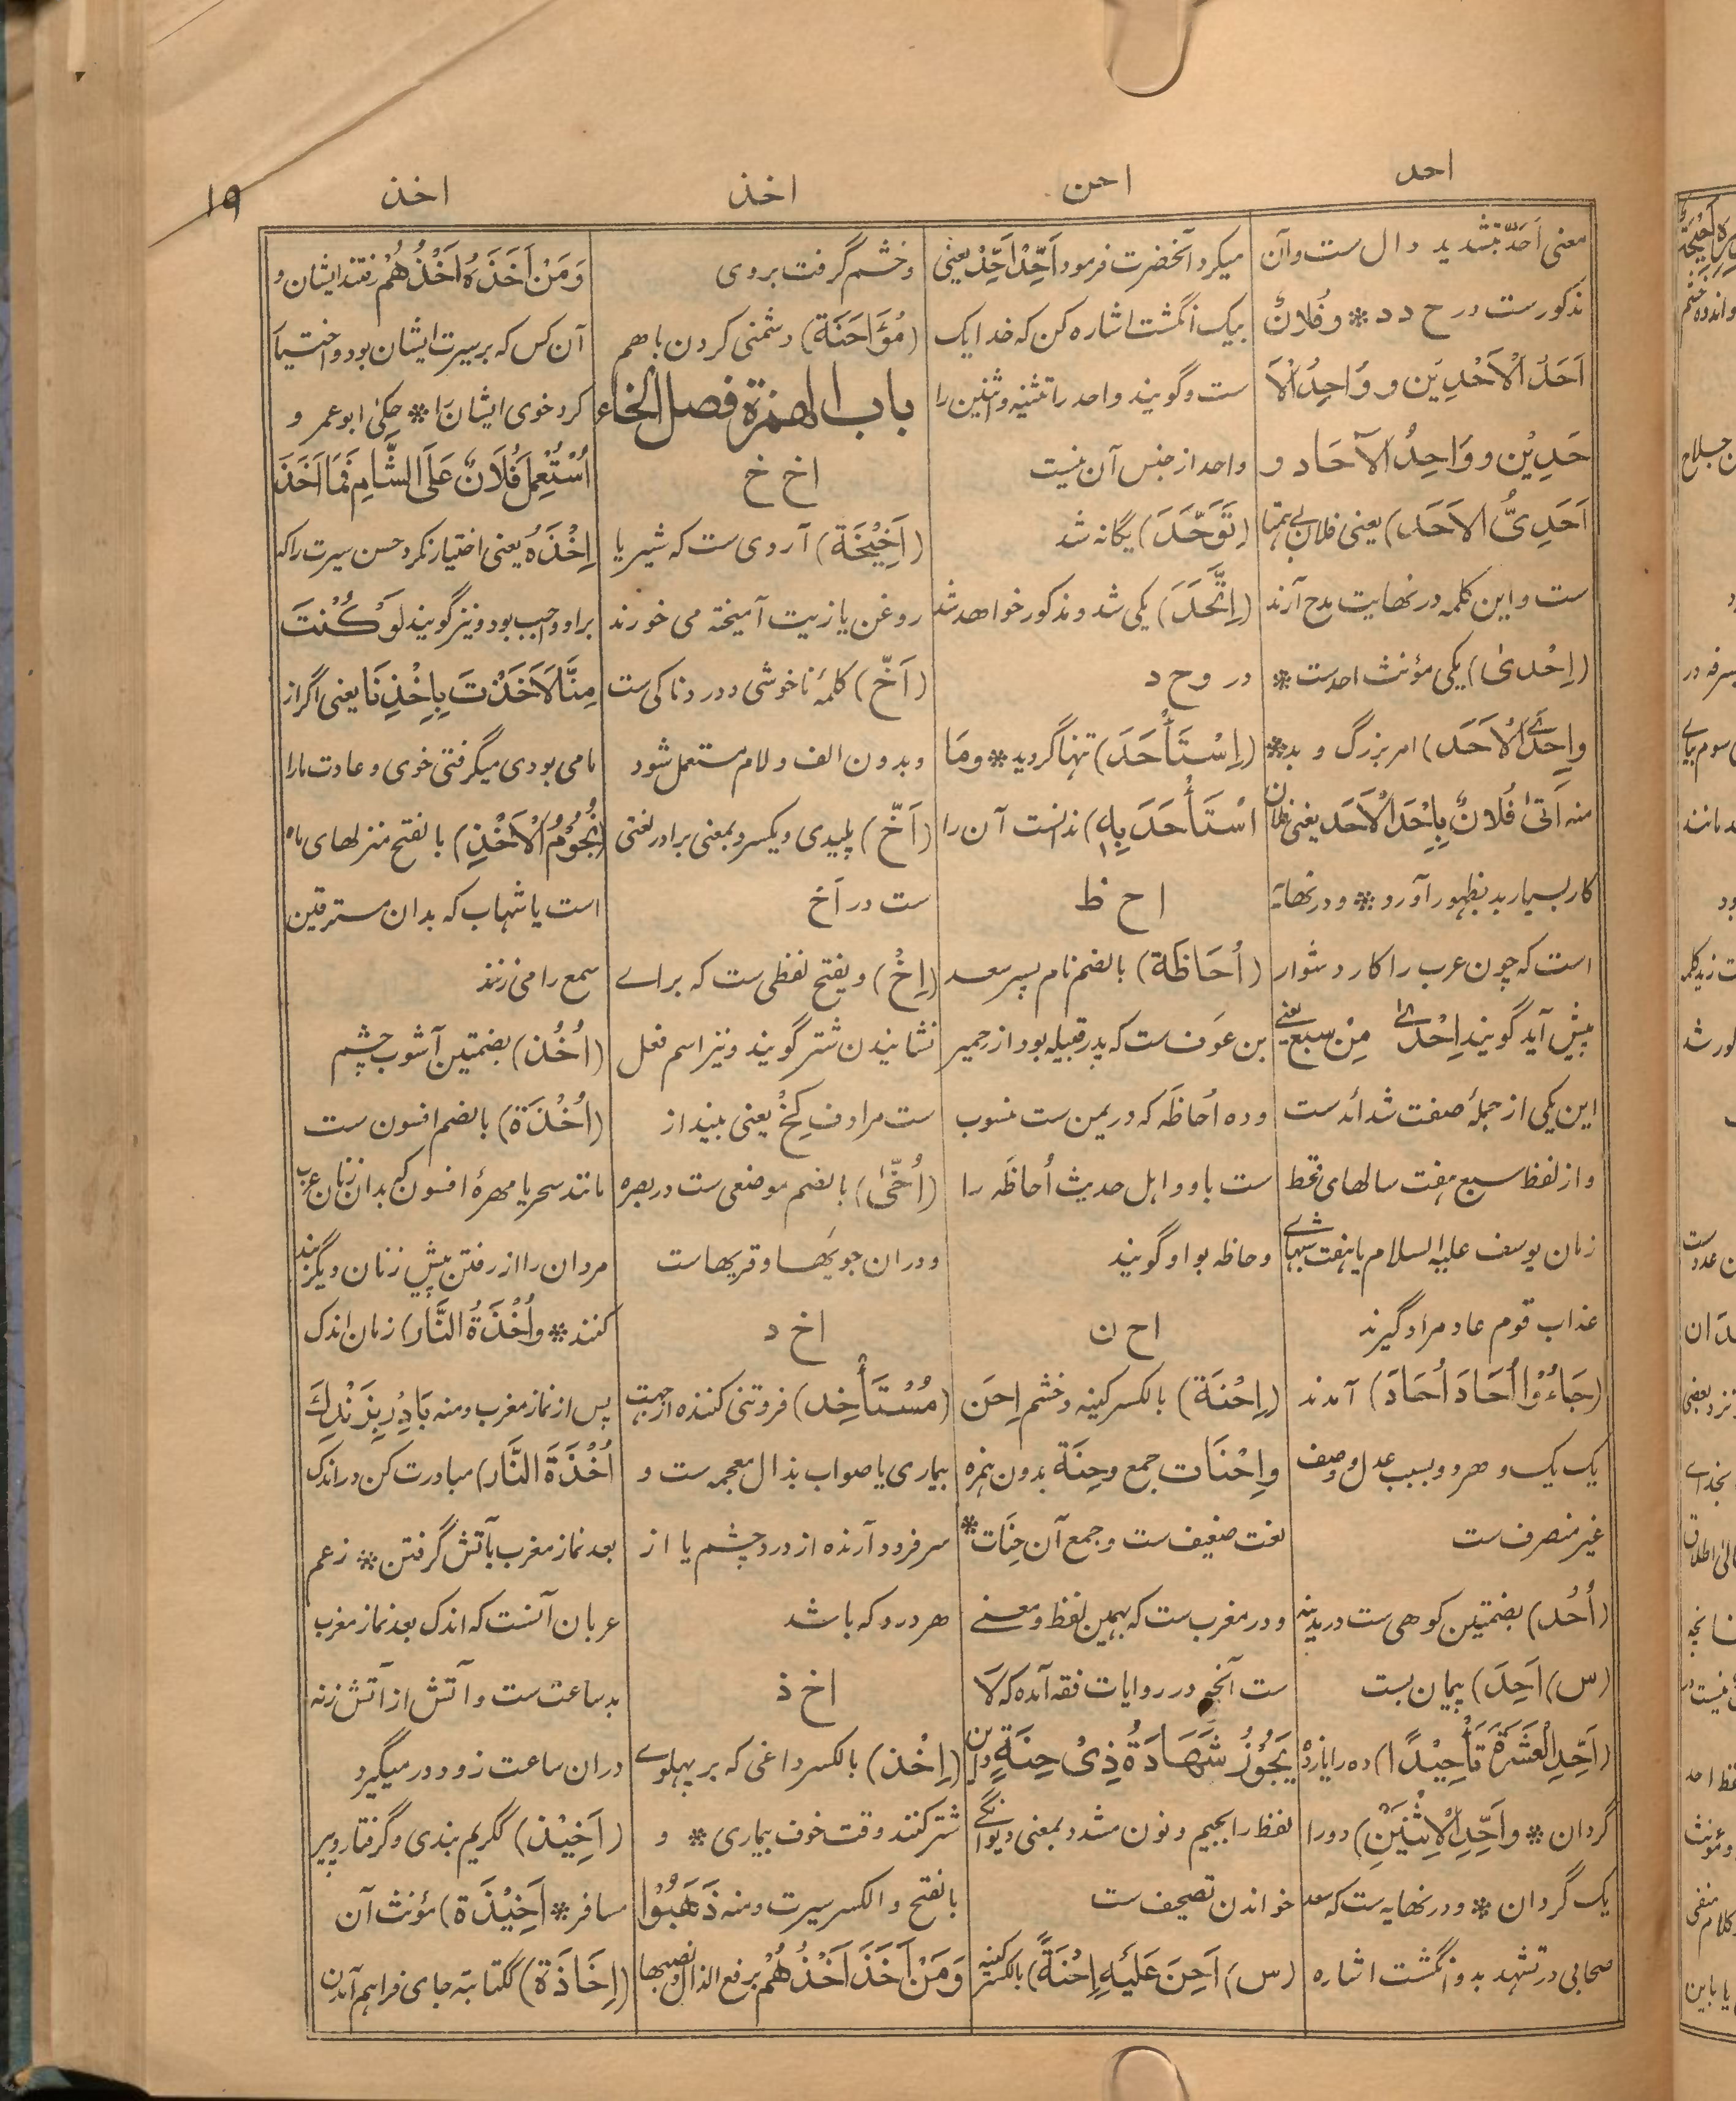 احد
احن
اخذ
اخذ
۱۹
معنی اَحَدّ بتشدید دال ست وآن
مذکورست در ح د د * و فُلانٌ
اَحَدُ الْاَحَدِیْن و وَاحِدُ الْاَ
حَدِیْن و وَاحِدُ الآحَاد و
اَحَدِیُّ الاَحَد) یعنی فلان بی همتا
ست واین کلمه در نهایت مدح آرند
(اِحْدیٰ) یکی مؤنث احدست *
واِحْدَی الْاَحَد) امر بزرگ و بد *
منه اَتیٰ فُلانٌ بِاِحْدَی الْاَحَد یعنی فلان
کار بسیار بد بظهور آورد * و در نهایة
است که چون عرب را کار دشوار
پیش آید گویند اِحْدیٰ مِنْ سَبْع یعنی
این یکی از جملهٔ صفت شدائد ست
واز لفظ سبع هفت سالهای قحط
زمان یوسف علیه السلام یا هفت شبهای
عذاب قوم عاد مراد گیرند
(جَاءُوْا اُحَادَ اُحَادَ) آمدند
یک یک و هر دو بسبب عدل و وصف
غیر منصرف ست
(اُحُد) بضمتین کوهی ست در مدینه
(س) اَحِدَ) پیمان بست
(اَحِّدِ الْعَشَرَةَ تَأْحِیْدًا) ده را یازده
گردان * واَحِّدِ الْاِثْنَیْنِ) دو را
یک گردان * و در نهایه ست که سعد
صحابی در تشهد بدو انگشت اشاره
میکرد آنحضرت فرمود اَحِّدْ اَحِّدْ یعنی
بیک انگشت اشاره کن که خدا یک
ست و گویند واحد را تثنیه و اثنین را
واحد از جنس آن نیست
(تَوَحَّدَ) یگانه شد
(اِتَّحَدَ) یکی شد و مذکور خواهد شد
در و ح د
(اِسْتَأْحَدَ) تنها گردید * ومَا
اسْتَأْحَدَ بِهٖ) ندانست آن را
ا ح ظ
(اُحَاظَة) بالضم نام پسر سعد
بن عَوف ست که پدر قبیله بود از حمیر
و ده اُحاظَه که در یمن ست منسوب
ست باو و اهل حدیث اُحاظَه را
وحاظه بواو گویند
ا ح ن
(اِحْنَة) بالکسر کینه و خشم اِحَن
واِحْنَات جمع وحِنَة بدون همزه
لغت ضعیف ست و جمع آن حِنَات *
و در مغرب ست که بهمین لفظ و معنی
ست آنچه در روایات فقه آمده که لَا
یَجُوْزُ شَهَادَةُ ذِیْ حِنَةٍ و این
لفظ را بجیم و نون مشدد بمعنی دیوانگی
خواندن تصحیف ست
(س) اَحِنَ عَلَیْهِ اِحْنَةً) بالکسر کینه
و خشم گرفت بر وی
(مُؤَاحَنَة) دشمنی کردن باهم
باب الهمزة فصل الخاء
ا خ خ
(اَخِیْخَة) آردی ست که شیر یا
روغن یا زیت آمیخته می خورند
(اَخّ) کلمهٔ ناخوشی و دردناکی ست
وبدون الف ولام مستعمل شود
(اَخّ) پلیدی و یکسر و بمعنی برادر لغتی
ست در اَخ
(اِخْ) و یفتح لفظی ست که برای
نشانیدن شتر گویند ونیز اسم فعل
ست مرادف کِخْ یعنی بینداز
(اُخّیٰ) بالضم موضعی ست در بصره
ودران جویها و قریها ست
ا خ د
(مُسْتَأْخِد) فروتنی کننده از جهت
بیماری یا صواب بذال معجمه ست و
سر فرود آرنده از درد چشم یا از
هر درد که باشد
ا خ ذ
(اِخْذ) بالکسر داغی که بر پهلوی
شتر کنند وقت خوف بیماری * و
بالفتح و الکسر سیرت ومنه ذَهَبُوْا
وَمَنْ اَخَذَ اَخْذُهُمْ برفع الذال ونصبها
وَمَنْ اَخَذَهُ اَخْذُهُمْ رفتند ایشان و
آن کس که بر سیرت ایشان بود و اختیار
کرد خوی ایشان را * حکیٰ ابوعمرو
اُسْتُعْمِلَ فُلَانٌ عَلَی الشَّامِ فَمَا اَخَذَ
اِخْذَهٗ یعنی اختیار نکرد حسن سیرت را که
بر او واجب بود ونیز گویند لَوْ کُنْتَ
مِنَّا لَاَخَذْتَ بِاِخْذِنَا یعنی اگر از
ما می بودی میگرفتی خوی و عادت ما را
(نُجُوْمُ الْاَخْذِ) بالفتح منزلهای ماه
است یا شهاب که بدان مسترقین
سمع را می زنند
(اُخُذ) بضمتین آشوب چشم
(اُخْذَة) بالضم افسون ست
مانند سحر یا مهرهٔ افسون که بدان زنان عرب
مردان را از رفتن پیش زنان دیگر بند
کنند * و اُخْذَةُ النَّار) زمان اندک
پس از نماز مغرب ومنه بَادِرْ بِزَنْدِكَ
اُخْذَةَ النَّار) مبادرت کن در اندک
بعد نماز مغرب بآتش گرفتن * زعم
عربان آنست که اندک بعد نماز مغرب
بد ساعت ست وآتش از آتش زنه
دران ساعت زود در میگیرد
(اَخِیْذ) ککریم بندی و گرفتار و پیر
مسافر * اَخِیْذَة) مؤنث آن
(اِخَاذَة) ککتابة جای فراهم آمدن